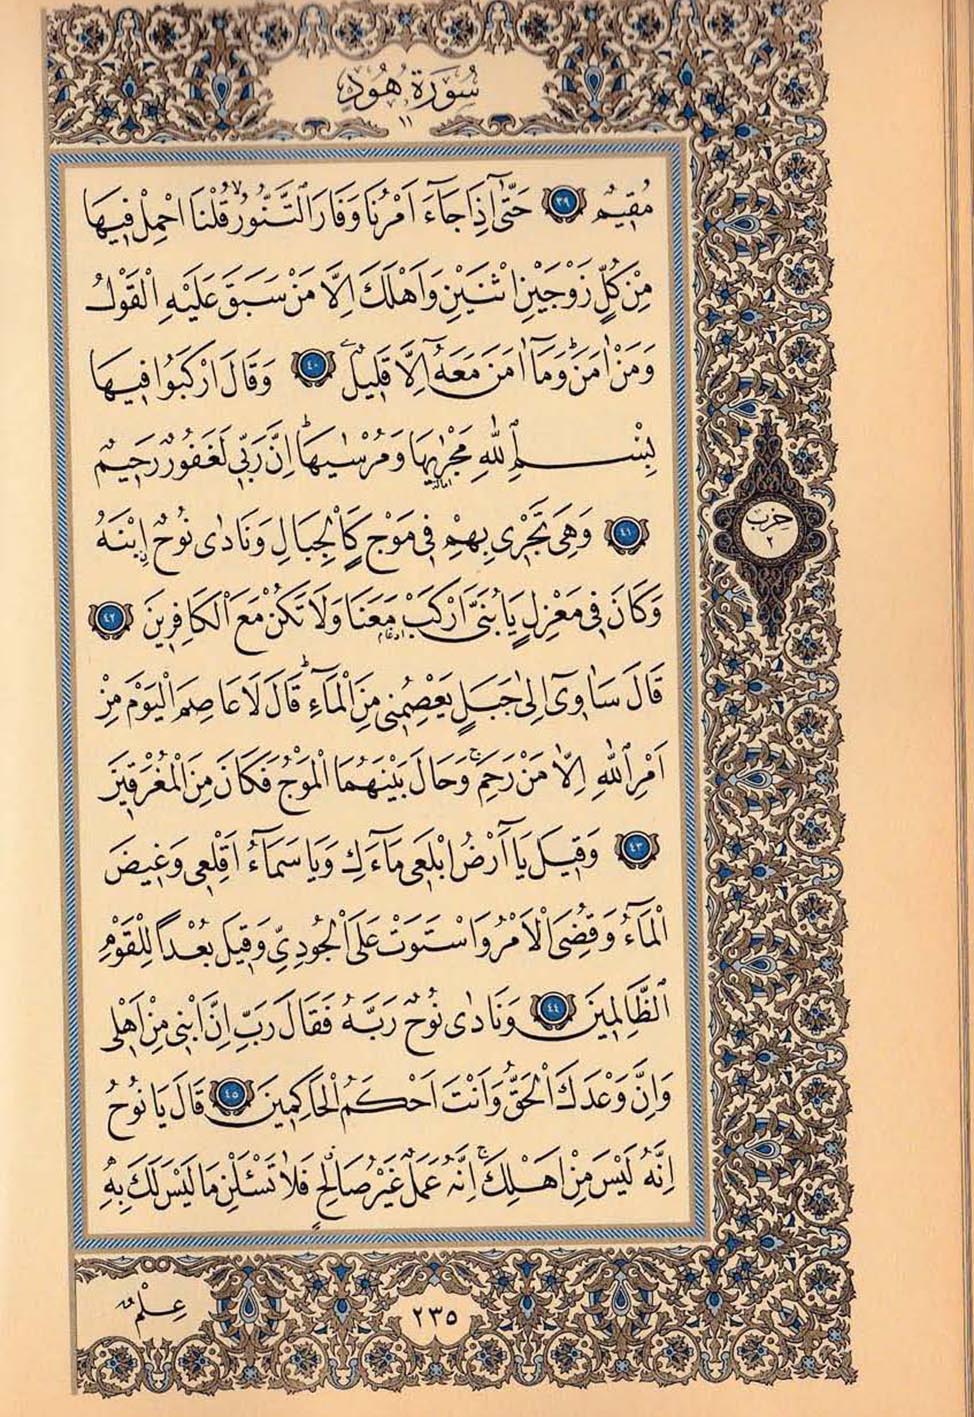 سُورَةُ هُودٍ
١١
مُقِيمٌ ﴿٣٩﴾ حَتّٰٓى اِذَا جَٓاءَ اَمْرُنَا وَفَارَ التَّنُّورُۙ قُلْنَا احْمِلْ فِيهَا
مِنْ كُلٍّ زَوْجَيْنِ اثْنَيْنِ وَاَهْلَكَ اِلَّا مَنْ سَبَقَ عَلَيْهِ الْقَوْلُ
وَمَنْ اٰمَنَۜ وَمَٓا اٰمَنَ مَعَهُٓ اِلَّا قَلِيلٌ ﴿٤٠﴾ وَقَالَ ارْكَبُوا فِيهَا
بِسْمِ اللّٰهِ مَجْرٰۭۙيهَا وَمُرْسٰيهَاۜ اِنَّ رَبِّى لَغَفُورٌ رَحِيمٌ
امالة
﴿٤١﴾ وَهِىَ تَجْرِى بِهِمْ فِى مَوْجٍ كَالْجِبَالِ وَنَادٰى نُوحٌ ابْنَهُ
وَكَانَ فِى مَعْزِلٍ يَا بُنَىَّ ارْكَبْ مَعَنَا وَلَا تَكُنْ مَعَ الْكَافِرِينَ ﴿٤٢﴾
ادغام
قَالَ سَاٰوِٓى اِلٰى جَبَلٍ يَعْصِمُنِى مِنَ الْمَٓاءِۜ قَالَ لَا عَاصِمَ الْيَوْمَ مِنْ
اَمْرِ اللّٰهِ اِلَّا مَنْ رَحِمَۚ وَحَالَ بَيْنَهُمَا الْمَوْجُ فَكَانَ مِنَ الْمُغْرَقِينَ
﴿٤٣﴾ وَقِيلَ يَٓا اَرْضُ ابْلَعِى مَٓاءَكِ وَيَا سَمَٓاءُ اَقْلِعِى وَغِيضَ
الْمَٓاءُ وَقُضِىَ الْاَمْرُ وَاسْتَوَتْ عَلَى الْجُودِىِّ وَقِيلَ بُعْداً لِلْقَوْمِ
الظَّالِمِينَ ﴿٤٤﴾ وَنَادٰى نُوحٌ رَبَّهُ فَقَالَ رَبِّ اِنَّ ابْنِى مِنْ اَهْلِى
وَاِنَّ وَعْدَكَ الْحَقُّ وَاَنْتَ اَحْكَمُ الْحَاكِمِينَ ﴿٤٥﴾ قَالَ يَا نُوحُ
اِنَّهُ لَيْسَ مِنْ اَهْلِكَۚ اِنَّهُ عَمَلٌ غَيْرُ صَالِحٍ فَلَا تَسْـَٔلْنِ مَا لَيْسَ لَكَ بِهِ
حزب
٢
عِلْمٌ
٢٣٥